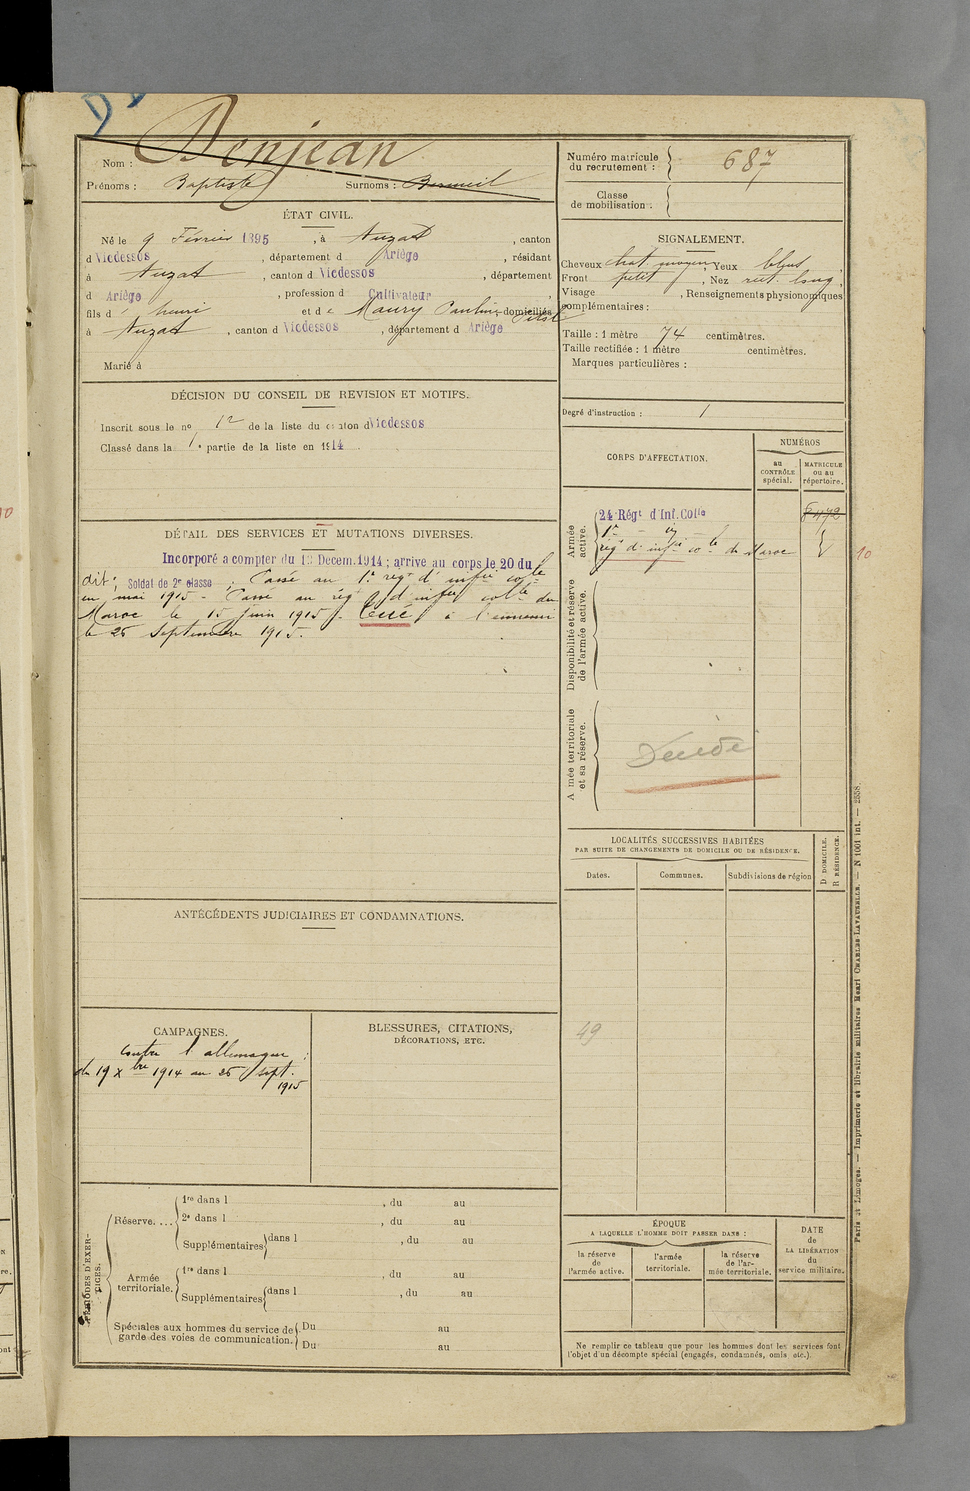 Denjean
Nom :
Prénoms : Baptiste Surnoms :
ÉTAT CIVIL.
Né le 9 Février 1895, à Auzat, canton
d Vicdessos, département d Ariège, résidant
à Auzat, canton d Vicdessos, département
d Ariège, profession d Cultivateur,
fils d e henri et d e Maury Pauline domiciliés
à Auzat, canton d Vicdessos, département d Ariège
Marié à
DÉCISION DU CONSEIL DE REVISION ET MOTIFS.
Inscrit sous le no 12 de la liste du canton d Vicdessos
Classé dans la 1e partie de la liste en 1914
DÉTAIL DES SERVICES ET MUTATIONS DIVERSES.
Incorporé a compter du 19 Decem. 1914 ; arrive au corps le 20 du
dit ; Soldat de 2e classe. Passé au 1er regt d' infie colle
en mai 1915 - Passé au régt d'infie colle du
Maroc le 15 juin 1915. Tué à l'ennemi
le 26 Septembre 1915.
ANTÉCÉDENTS JUDICIAIRES ET CONDAMNATIONS.
CAMPAGNES.
Contre l'allemagne :
du 19 Xbre 1914 au 26 sept.
1915
BLESSURES, CITATIONS,
DÉCORATIONS, ETC.
PÉRIODES D'EXERCICES.
Réserve. ...
1re dans l , du au
2e dans l , du au
Supplémentaires dans l , du au
Armée territoriale.
1re dans l , du au
Supplémentaires dans l , du au
Spéciales aux hommes du service de garde des voies de communication.
Du au
Du au
Numéro matricule du recrutement : 687
Classe de mobilisation :
SIGNALEMENT.
Cheveux chat. moyen, Yeux bleus,
Front petit, Nez rect. long,
Visage , Renseignements physionomiques
complémentaires :
Taille : 1 mètre 74 centimètres.
Taille rectifiée : 1 mètre centimètres.
Marques particulières :
Degré d'instruction : 1
CORPS D'AFFECTATION.
NUMÉROS
au CONTRÔLE spécial.
MATRICULE ou au répertoire.
Armée active.
24 Régt d'Inf. Colle
8472
1er
régt d'infie colle du Maroc
10
Disponibilité et réserve de l'armée active.
Armée territoriale et sa réserve.
Décédé
LOCALITÉS SUCCESSIVES HABITÉES
PAR SUITE DE CHANGEMENTS DE DOMICILE OU DE RÉSIDENCE.
Dates. Communes. Subdivisions de région
D DOMICILE.
R RÉSIDENCE.
49
ÉPOQUE
A LAQUELLE L'HOMME DOIT PASSER DANS :
la réserve de l'armée active.
l'armée territoriale.
la réserve de l'armée territoriale.
DATE de LA LIBÉRATION du service militaire.
Ne remplir ce tableau que pour les hommes dont les services font
l'objet d'un décompte spécial (engagés, condamnés, omis etc.).
Paris et Limoges. — Imprimerie et librairie militaires Henri CHARLES-LAVAUZELLE. — N 1001 int. — 2558.